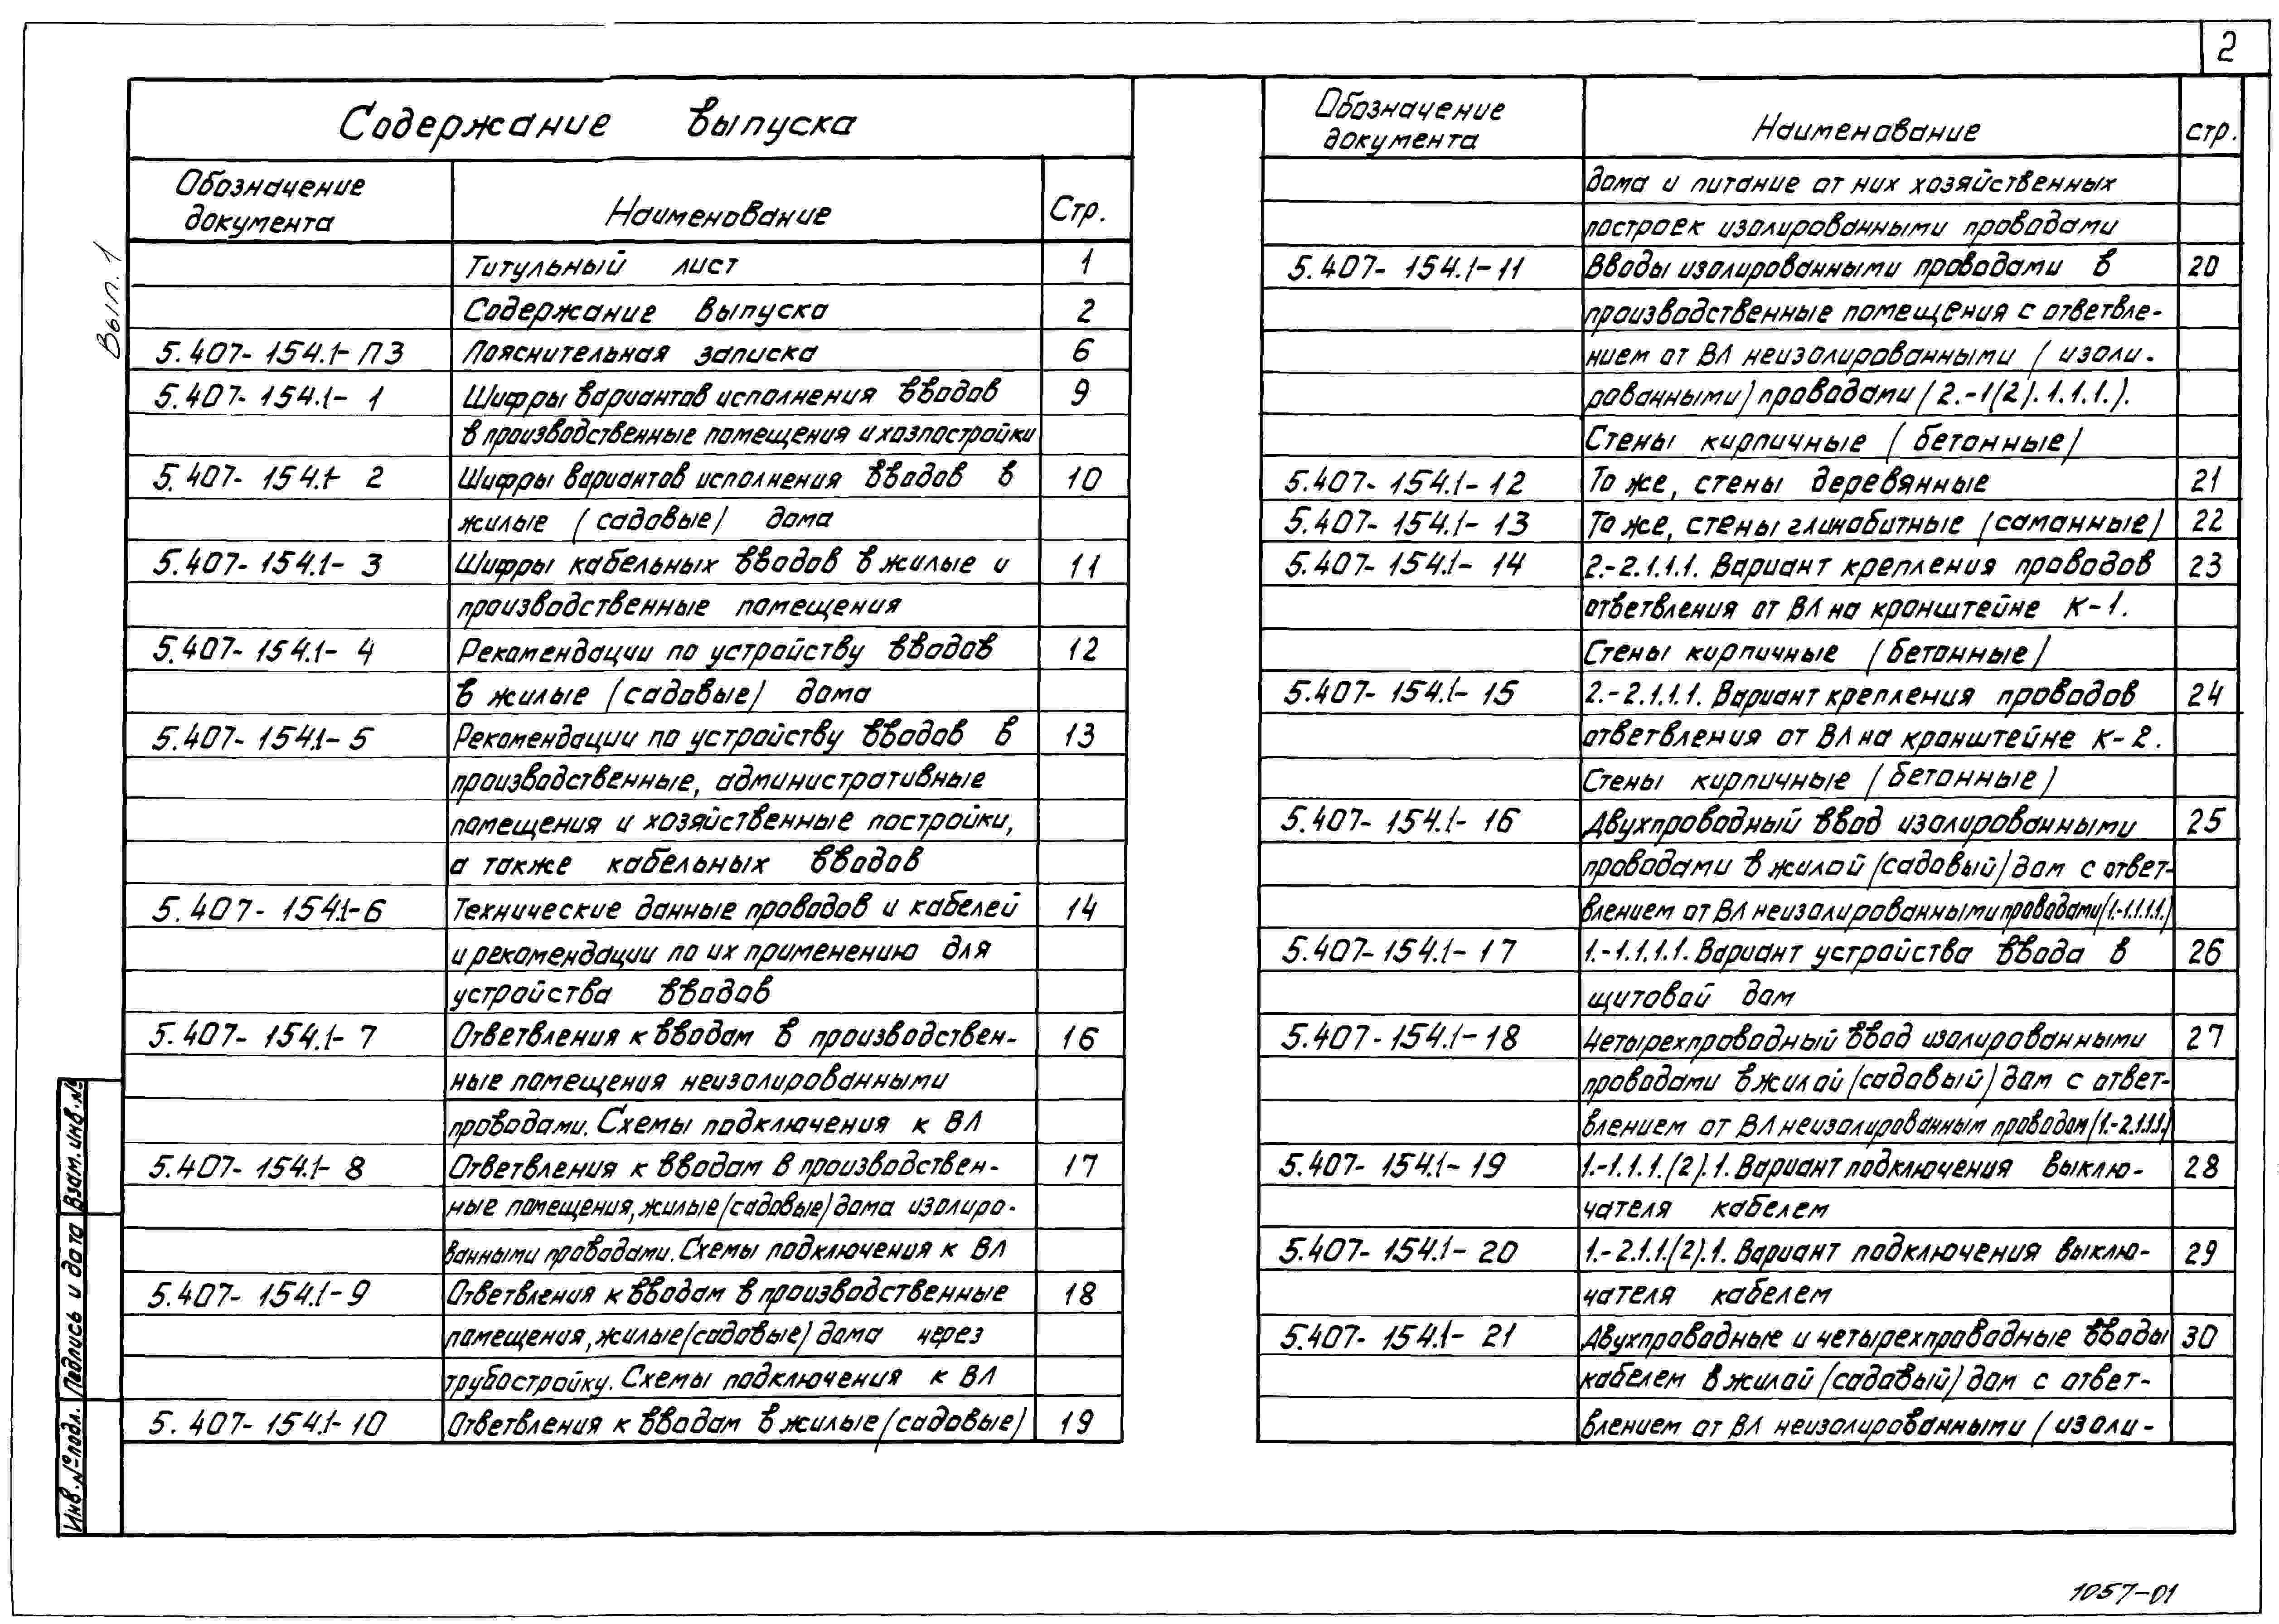 2
Содержание выпуска
Обозначение документа Наименование Стр.
Титульный лист 1
Содержание выпуска 2
5.407-154.1-ПЗ Пояснительная записка 6
5.407-154.1-1 Шифры вариантов исполнения вводов 9
в производственные помещения и хозпостройки
5.407-154.1-2 Шифры вариантов исполнения вводов в 10
жилые (садовые) дома
5.407-154.1-3 Шифры кабельных вводов в жилые и 11
производственные помещения
5.407-154.1-4 Рекомендации по устройству вводов 12
в жилые (садовые) дома
5.407-154.1-5 Рекомендации по устройству вводов в 13
производственные, административные
помещения и хозяйственные постройки,
а также кабельных вводов
5.407-154.1-6 Технические данные проводов и кабелей 14
и рекомендации по их применению для
устройства вводов
5.407-154.1-7 Ответвления к вводам в производствен- 16
ные помещения неизолированными
проводами. Схемы подключения к ВЛ
5.407-154.1-8 Ответвления к вводам в производствен- 17
ные помещения, жилые (садовые) дома изолиро-
ванными проводами. Схемы подключения к ВЛ
5.407-154.1-9 Ответвления к вводам в производственные 18
помещения, жилые (садовые) дома через
трубостройку. Схемы подключения к ВЛ
5.407-154.1-10 Ответвления к вводам в жилые (садовые) 19
Обозначение документа Наименование стр.
дома и питание от них хозяйственных
построек изолированными проводами
5.407-154.1-11 Вводы изолированными проводами в 20
производственные помещения с ответвле-
нием от ВЛ неизолированными (изоли-
рованными) проводами (2.-1(2).1.1.1.).
Стены кирпичные (бетонные)
5.407-154.1-12 То же, стены деревянные 21
5.407-154.1-13 То же, стены глинобитные (саманные) 22
5.407-154.1-14 2.-2.1.1.1. Вариант крепления проводов 23
ответвления от ВЛ на кронштейне К-1.
Стены кирпичные (бетонные)
5.407-154.1-15 2.-2.1.1.1. Вариант крепления проводов 24
ответвления от ВЛ на кронштейне К-2.
Стены кирпичные (бетонные)
5.407-154.1-16 Двухпроводный ввод изолированными 25
проводами в жилой (садовый) дом с ответ-
влением от ВЛ неизолированными проводами (1.-1.1.1.1.)
5.407-154.1-17 1.-1.1.1.1. Вариант устройства ввода в 26
щитовой дом
5.407-154.1-18 Четырехпроводный ввод изолированными 27
проводами в жилой (садовый) дом с ответ-
влением от ВЛ неизолированным проводом (1.-2.1.1.1.)
5.407-154.1-19 1.-1.1.1.(2).1. Вариант подключения выклю- 28
чателя кабелем
5.407-154.1-20 1.-2.1.1.(2).1. Вариант подключения выклю- 29
чателя кабелем
5.407-154.1-21 Двухпроводные и четырехпроводные вводы 30
кабелем в жилой (садовый) дом с ответ-
влением от ВЛ неизолированными (изоли-
Вып. 1
Взам. инв. №
Подпись и дата
Инв. № подл.
1057-01